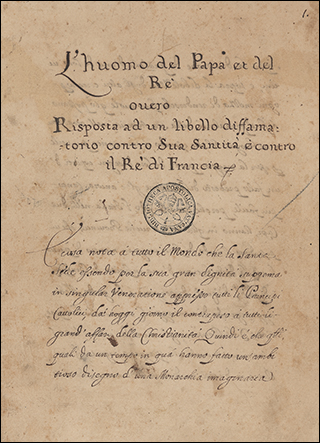 1.
L'huomo del Papa et del
Re
overo
Risposta ad un libello diffama:
torio contro Sua Santità e contro
il Rè di Francia
BIBLIOTECA APOSTOLICA VATICANA
Cosa nota à tutto il Mondo che la Santa
Sede essendo per la sua gran dignita suprema
in singular Veneratione appresso tutti li Prencipi
Catolici, dà hoggi giorno il contrapeso à tutti i
grand' affari della Christianità. Quindi è, che
quali da un tempo in qua hanno fatto un' ambi
tioso disegno d'una Monarchia imaginaria